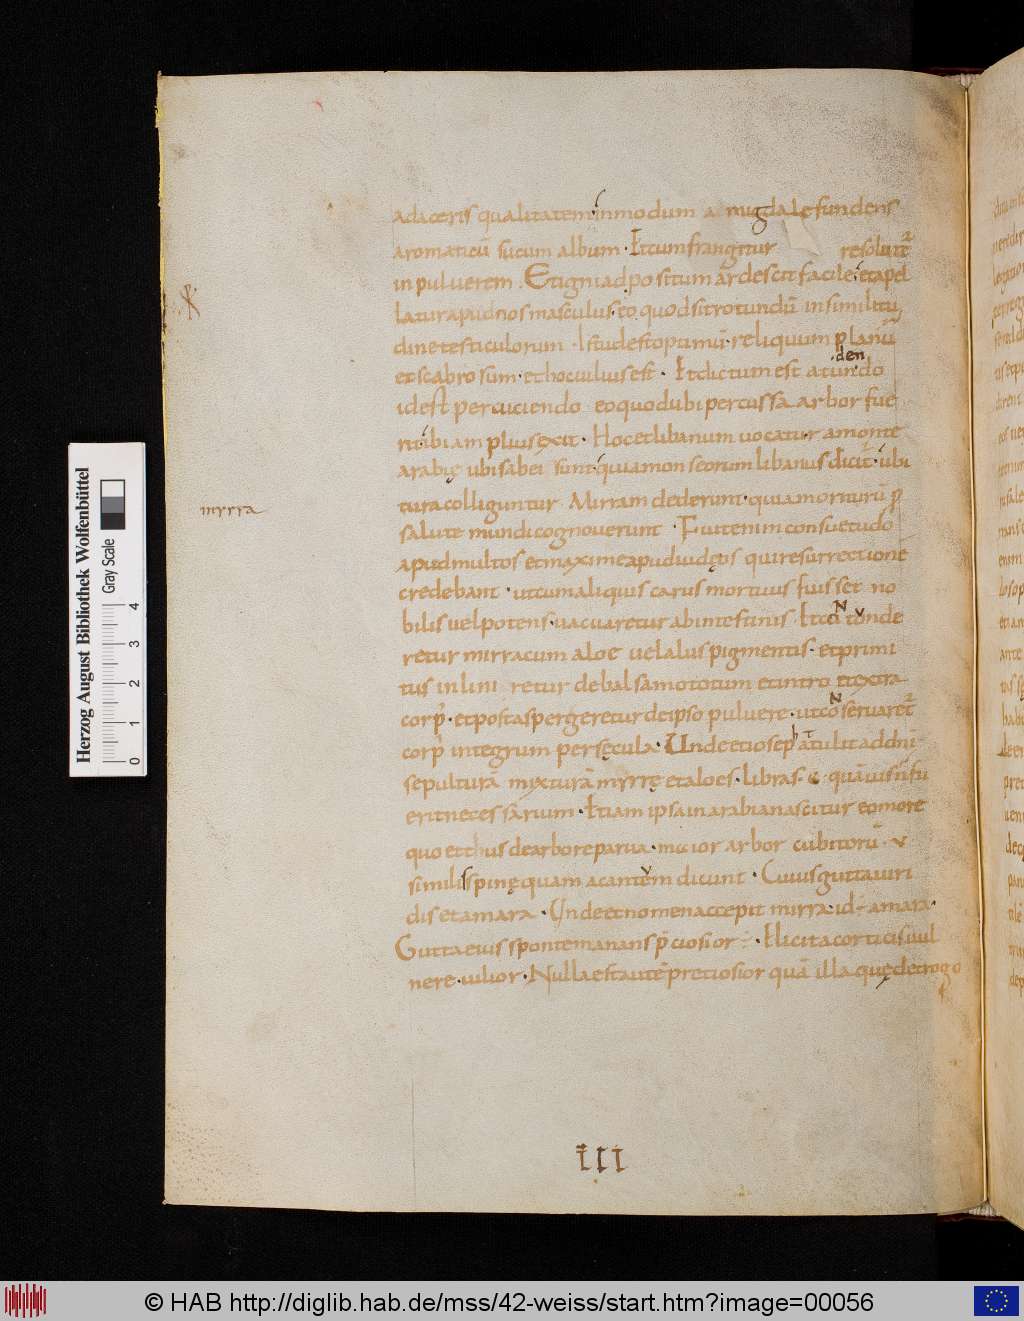 adaceris qualitatem inmodum amigdale fundens
aromaticū sucum album · Et cum frangitur resoluit̄
inpuluerem . Et igni adpositum ardescit facile · et apel
latur apud nos masculus · eo quod sit rotundū insimilitu
dine testiculorum · Istud est optimū · reliquum planū
.den
et scabrosum · et hoc uilius est · Et dictum est atundo
idest percuciendo eo quod ubi percussa arbor fue
rit ibi amplius exit · Hoc et libanum uocatur amonte
arabię ubi sabei sunt · quia mons eorum libanus dicit̄ · ubi
tura colliguntur · Mirram dederunt · quia moriturū p̱
myrra
salute mundi cognouerunt · Fuit enim consuetudo
apud multos et maxime apud iudęos qui resurrectionē
credebant · ut cum aliquis carus mortuus fuisset no
bilis uel potens · uacuaretur ab intestinis · Et conN tunvde
retur mirra cum aloe uel aliis pigmentis · et primi
tus inliniretur de balsamo totum et intro et extra
corp̓ · et post aspergeretur de ipso puluere · ut coNseruaret̄
corp̓ integrum per sęcula · Unde et iosepʰ attulit ad dnī
sepulturā mixturā myrrę et aloes · libras · c · quāuis n̄ fu
erit necessarium · Etiam ipsa in arabia nascitur eo more
quo et thus de arbore parua · maior arbor cubitorū · v
similis spinę quam acantvem dicunt · Cuius gutta uiri
dis et amara · Unde et nomen accepit mirra · id÷ amara ·
Gutta eius sponte manans p̄ciosior ÷ · Elicita corticis uul
nere · uilior · Nulla est autē pretiosior quā illa quę de trogo
III
Herzog August Bibliothek Wolfenbüttel
Gray Scale
0 1 2 3 4
© HAB http://diglib.hab.de/mss/42-weiss/start.htm?image=00056